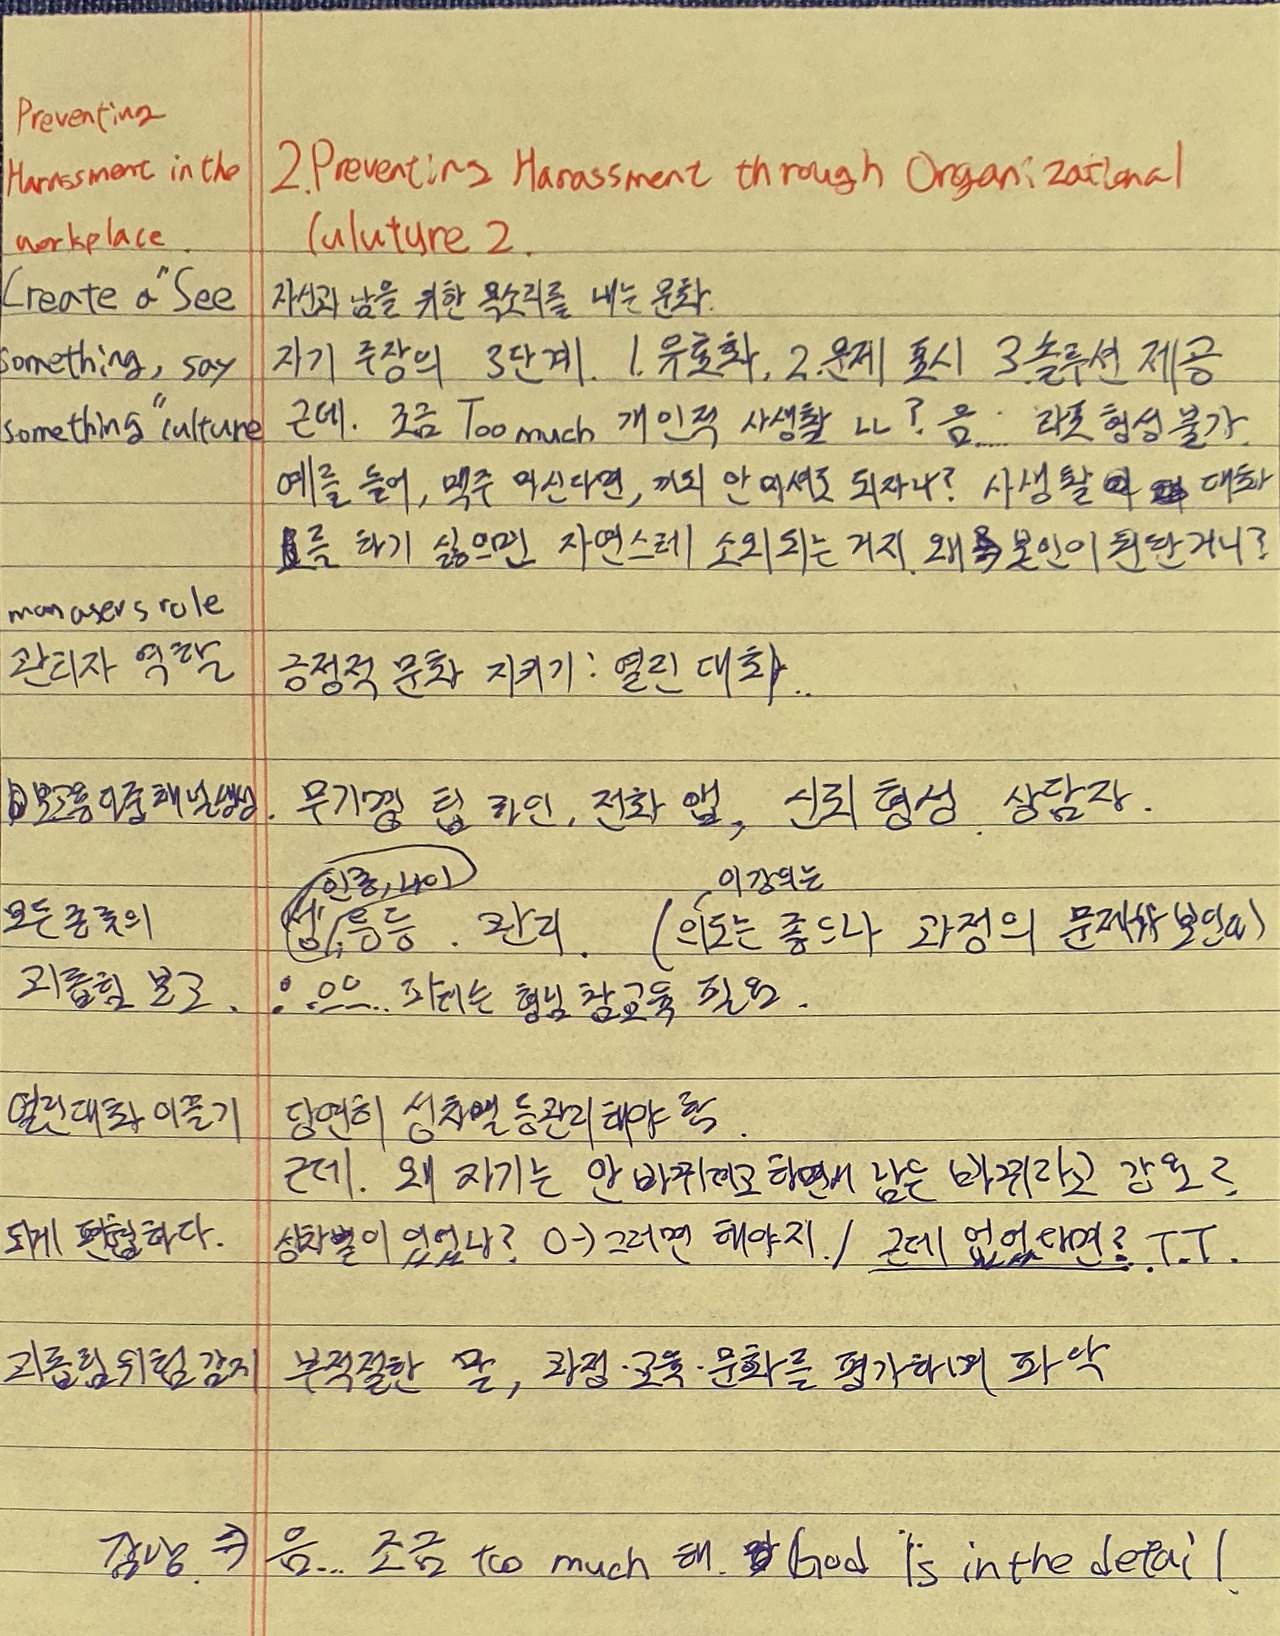 Preventing
Harassment in the
workplace.
2. Preventing Harassment through Organizational
Culuture 2.
Create a "See
something, say
something" culture
자신과 남을 위한 목소리를 내는 문화.
자기 주장의 3단계. 1. 유효화, 2. 문제 표시 3. 솔루션 제공
근데. 조금 Too much 개인적 사생활 ㄴㄴ? 음..... 라포 형성 불가.
예를 들어, 맥주 마신다면, 끼되 안 마셔도 되자나? 사생활 대화
를 하기 싫으면 자연스레 소외되는 거지 왜 본인이 판단거니?
managers role
관리자 역할
긍정적 문화 지키기 : 열린 대화..
보고용 이중 채널 생성.
무기명 팁 라인, 전화 앱, 신뢰 형성. 상담자.
모든 종류의
괴롭힘 보고.
인종, 나이
성, 등등. 관리.
이 강의는
(의도는 좋으나 과정의 문제가 보인다)
형님 참교육 필요.
열린 대화 이끌기
당연히 성차별 등 관리해야 함.
근데. 왜 자기는 안 바뀌려고 하면서 남은 바뀌라고 강요?
되게 편협하다.
성차별이 있었나? O → 그러면 해야지. / 근데 없었다면? T.T.
괴롭힘 위험 감지
부적절한 말, 과정·교육·문화를 평가하며 파악
감상 ⇒ 음... 조금 too much 해. God is in the detail.